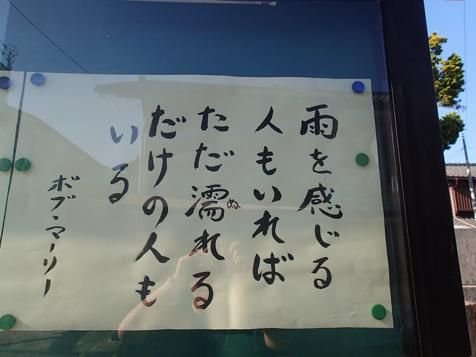 雨を感じる
人もいれば
ただ濡れる
ぬ
だけの人も
いる
ボブ・マーリー